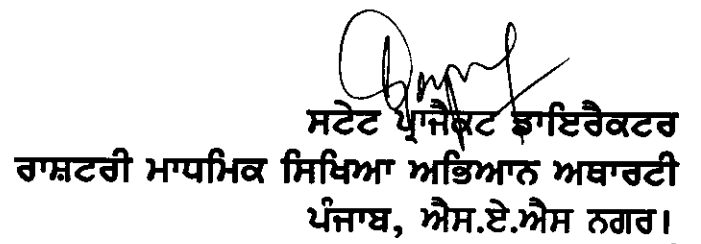 ਸਟੇਟ ਪ੍ਰਾਜੈਕਟ ਡਾਇਰੈਕਟਰ
ਰਾਸ਼ਟਰੀ ਮਾਧਮਿਕ ਸਿਖਿਆ ਅਭਿਆਨ ਅਥਾਰਟੀ
ਪੰਜਾਬ, ਐਸ.ਏ.ਐਸ ਨਗਰ।